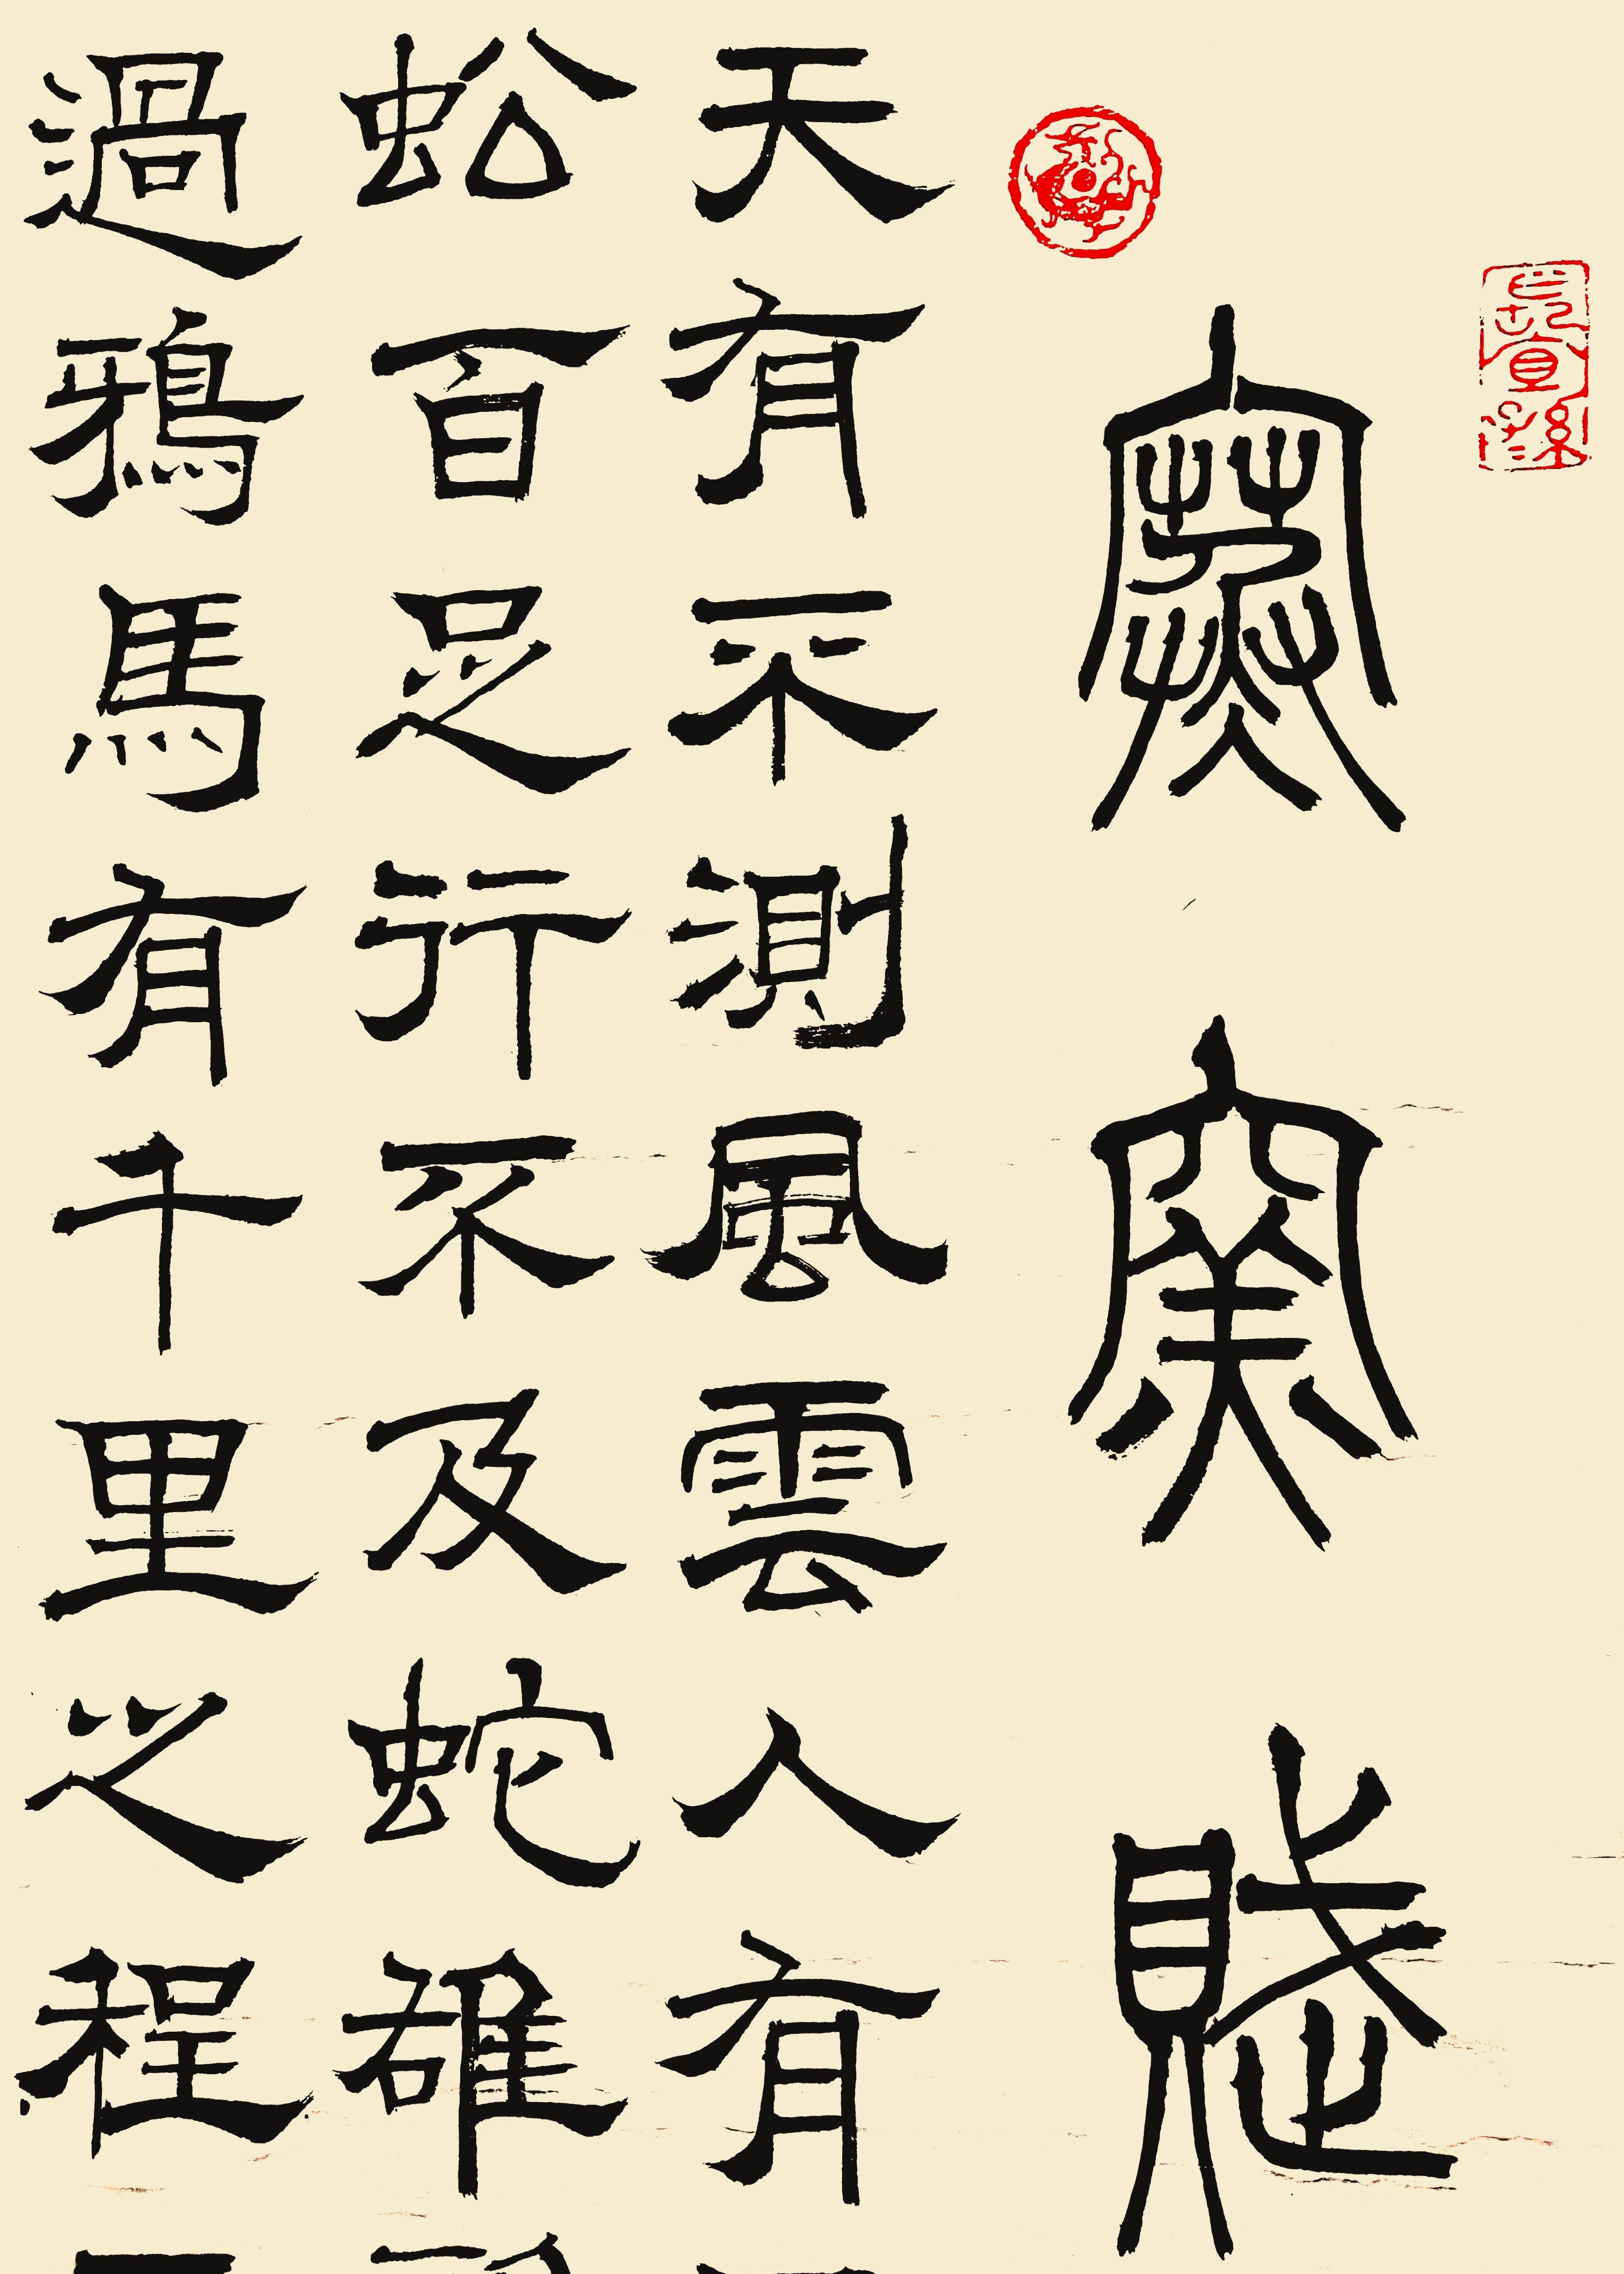 長宜子孫
寒窯賦
天有不測風雲人有
蚣百足行不及蛇雄
過鴉馬有千里之程